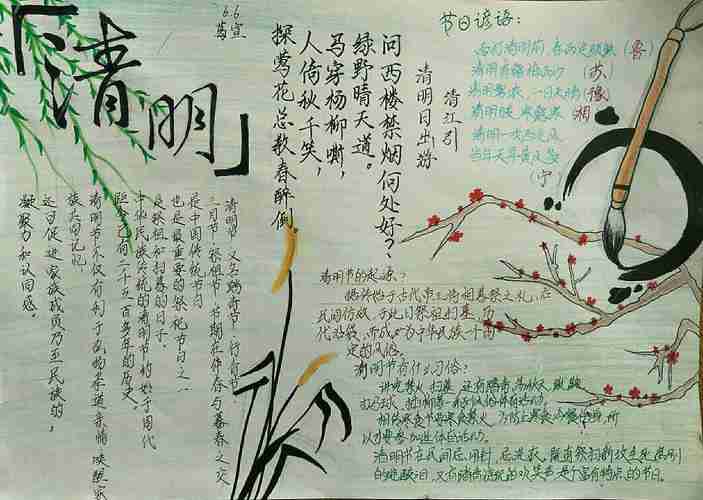 「清明」
6.6
莺宣
节日谚语:
雨打清明前,春雨定频繁(鲁)
清明有霜梅雨少(苏)
清明雾浓,一日天晴(豫)
清明暖,寒露寒(湘)
清明一吹西北风
当年天旱黄风多
(宁)
清江引
清明日出游
问西楼禁烟何处好?
绿野晴天道。
马穿杨柳嘶,
人倚秋千笑,
探莺花总教春醉倒。
清明节 又名踏青节 行清节
三月节 祭祖节 节期在仲春与暮春之交
是中国传统节日
也是最重要的祭祀节日之一
是祭祖和扫墓的日子。
中华民族传统的清明节约始于周代
距今已有二千五百多年的历史。
清明节不仅有利于弘扬孝道亲情、唤醒家
族共同记忆
还可促进家族成员乃至民族的,
凝聚力和认同感。
清明节的起源?
据传始于古代帝王将相墓祭之礼,后
民间仿效,于此日祭祖扫墓,历
代沿袭,而成为中华民族一个固
定的风俗。
清明节有什么习俗?
讲究禁火、扫墓,还有踏青、荡秋千、蹴鞠
打马球、插柳等一系列风俗体育活动。
相传寒食节要寒食禁火,为防止寒食冷餐伤身,所
以大家参加这体育活动。